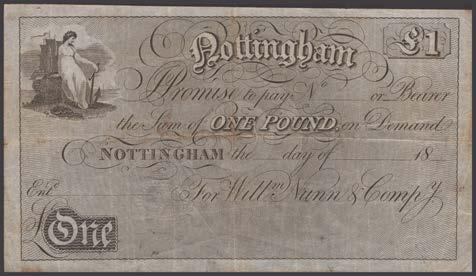 Nottingham £1
I Promise to pay No or Bearer
the Sum of ONE POUND, on Demand
NOTTINGHAM the day of 18
Entd For Willm Nunn & Compy
£ One